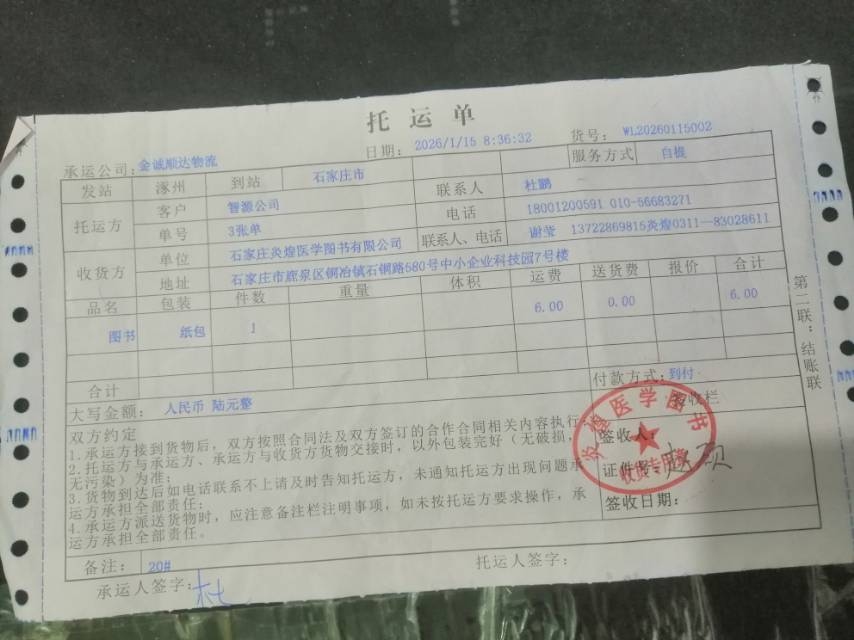 托运单
承运公司：金诚顺达物流 日期： 2026/1/15 8:36:32 货号： WL20260115002
发站 涿州 到站 石家庄市 服务方式 自提
托运方 客户 智源公司 联系人 杜鹏
单号 3张单 电话 18001200591 010-56683271
收货方 单位 石家庄炎煌医学图书有限公司 联系人、电话 谢莹 13722869815炎煌0311—83028611
地址 石家庄市鹿泉区铜冶镇石铜路580号中小企业科技园7号楼
品名 包装 件数 重量 体积 运费 送货费 报价 合计
图书 纸包 1 6.00 0.00 6.00
合计
大写金额： 人民币 陆元整 付款方式：到付
双方约定 签收栏
1.承运方接到货物后，双方按照合同法及双方签订的合作合同相关内容执行；
2.托运方与承运方、承运方与收货方货物交接时，以外包装完好（无破损，
无污染）为准；
3.货物到达后如电话联系不上请及时告知托运方，未通知托运方出现问题承
运方承担全部责任；
4.承运方派送货物时，应注意备注栏注明事项，如未按托运方要求操作，承
运方承担全部责任。
签收人
证件号
签收日期：
炎煌医学图书
收货专用章
备注： 20#
承运人签字： 杜 托运人签字：
第二联：结账联